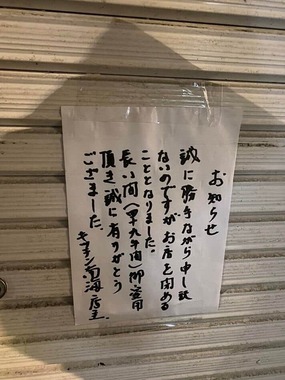 お知らせ
誠に勝手ながら申し訳
ないのですがお店を閉める
こととなりました。
長い間（早九年間）御愛用
頂き誠に有りがとう
ございました。
キッチン南海店主